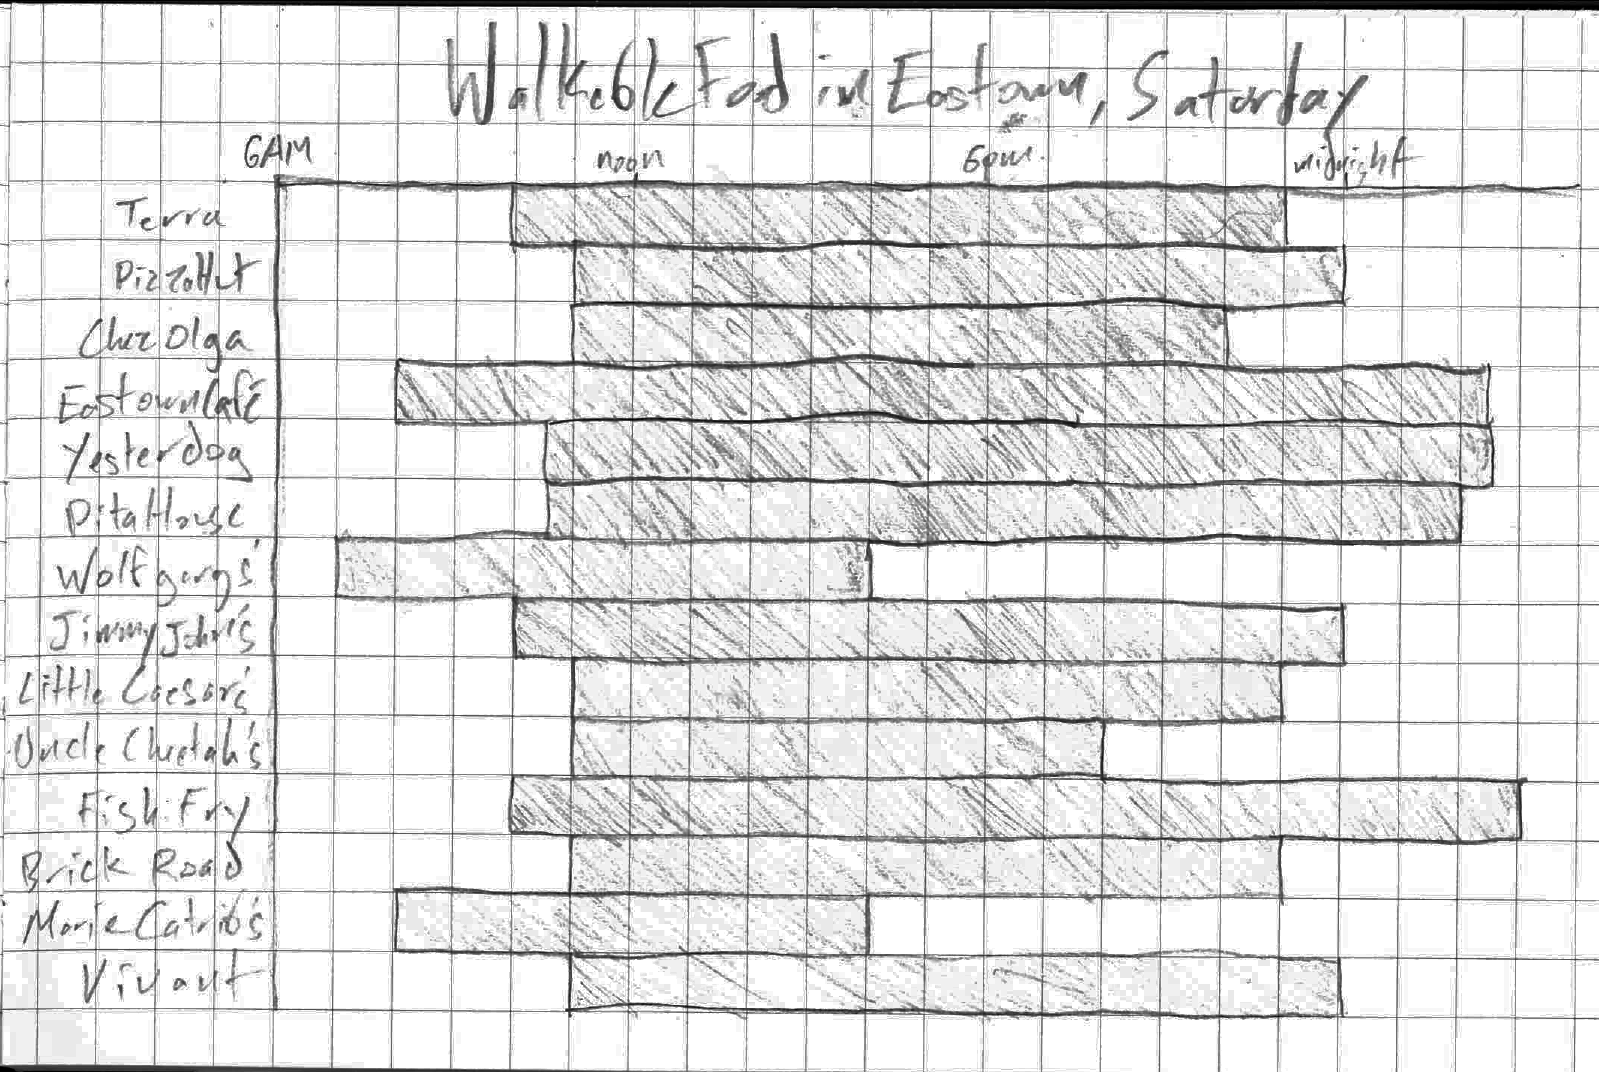 Walkable Food in Eastown, Saturday
6AM noon 6pm midnight
Terra
Pizza Hut
Chez Olga
Eastown Café
Yesterdog
Pita House
Wolfgang's
Jimmy John's
Little Caesar's
Uncle Cheetah's
Fish Fry
Brick Road
Marie Catrib's
Vivant